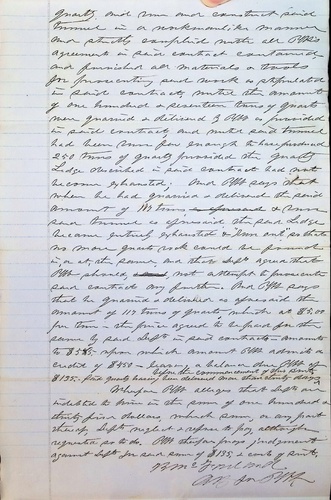 quartz and run and construct said
tunnel in a workmanlike manner
and strictly complied with all
agreements in said contract contained
and furnished all materials & tools
for prosecuting said work as stipulated
in said contract, until the amount
of one hundred & seventeen tons of quartz
were quarried & delivered by Plff as provided
in said contract and until said tunnel
had been run far enough to have produced
250 tons of quartz provided the quartz
Ledge described in said contract had not
become exhausted. And Plff says that
when he had quarried & delivered the said
amount of 117 tons & run
said tunnel as aforesaid the said Ledge
became entirely exhausted & "run out" so that
no more quartz rock could be found
in, or at, the same and that Deft agreed that
Plff should, not attempt to prosecute
said contract any further. And Plff says
that he quarried & delivered as aforesaid the
amount of 117 tons of quartz which at $5,00
per ton – the price agreed to be paid for the
same by said Deft in said contract – amounts
to $585 – upon which amount Plff admits a
credit of $450 – leaving a balance due Plff of
before the commencement of this suit
$135. Said quartz having been delivered more than thirty days
Wherefore Plff alleges that Deft is
indebted to him in the sum of one hundred &
thirty five dollars, which sum, or any part
thereof, Deft neglects & refuses to pay although
requested so to do. Plff therefore prays judgment
against Deft for said sum of $135, & costs of suit,
Atty for Plff